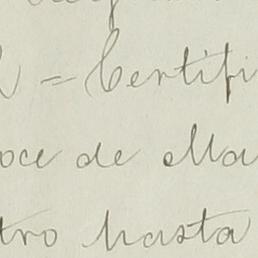 = Certifi
oce de Ma
tro hasta